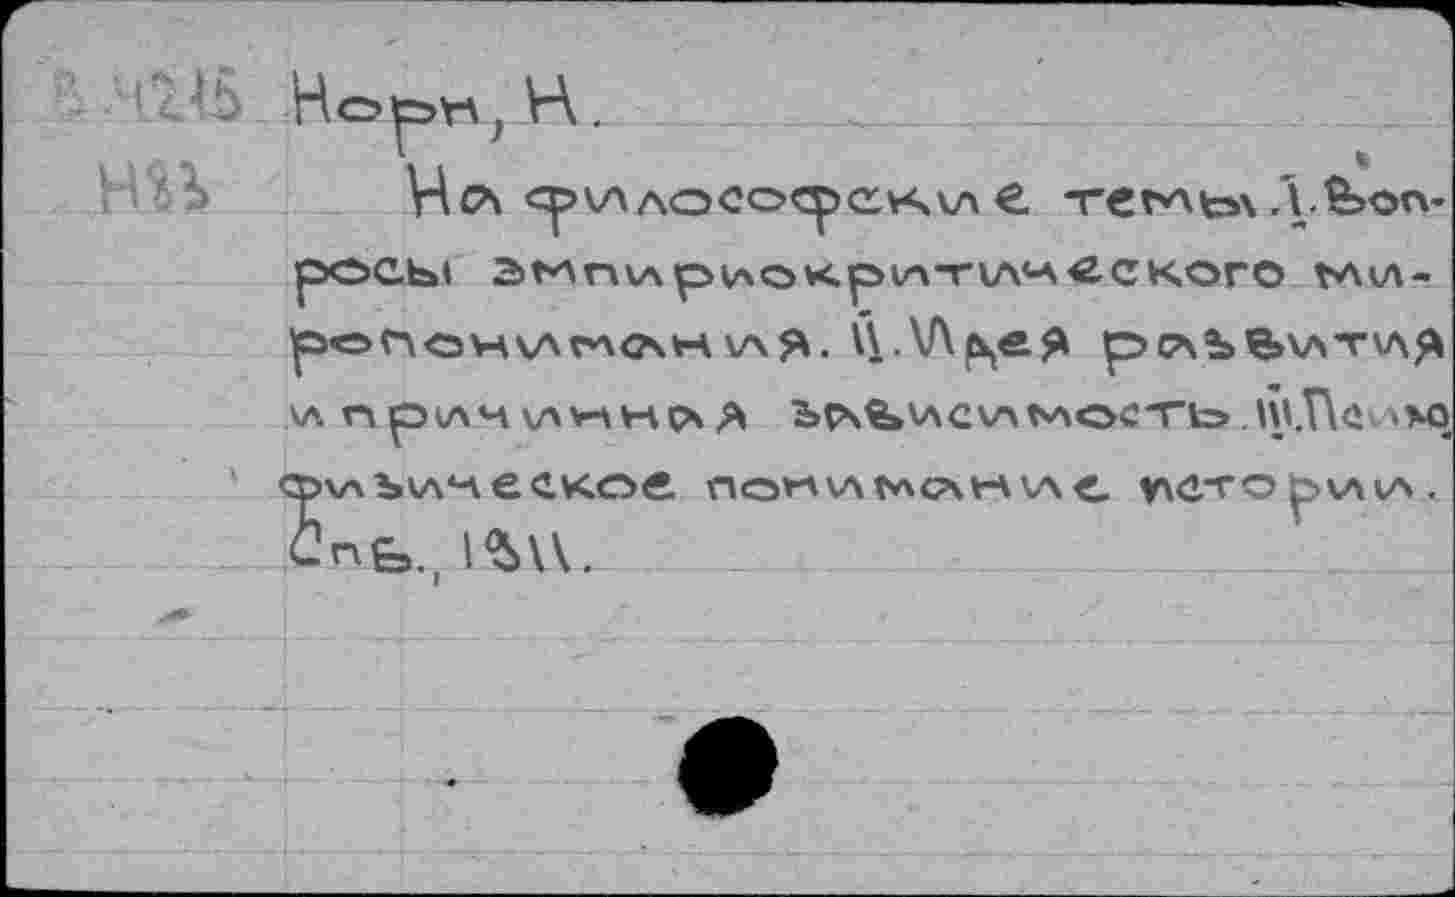 В.4245 Норн, Н.
Н83 На философские темы. I. Воп-
росы эмпириокритического ми-
ропонимания. II. Идея развития
и причинная зависимость. III.
физическое понимание истории.
Спб., 1911.